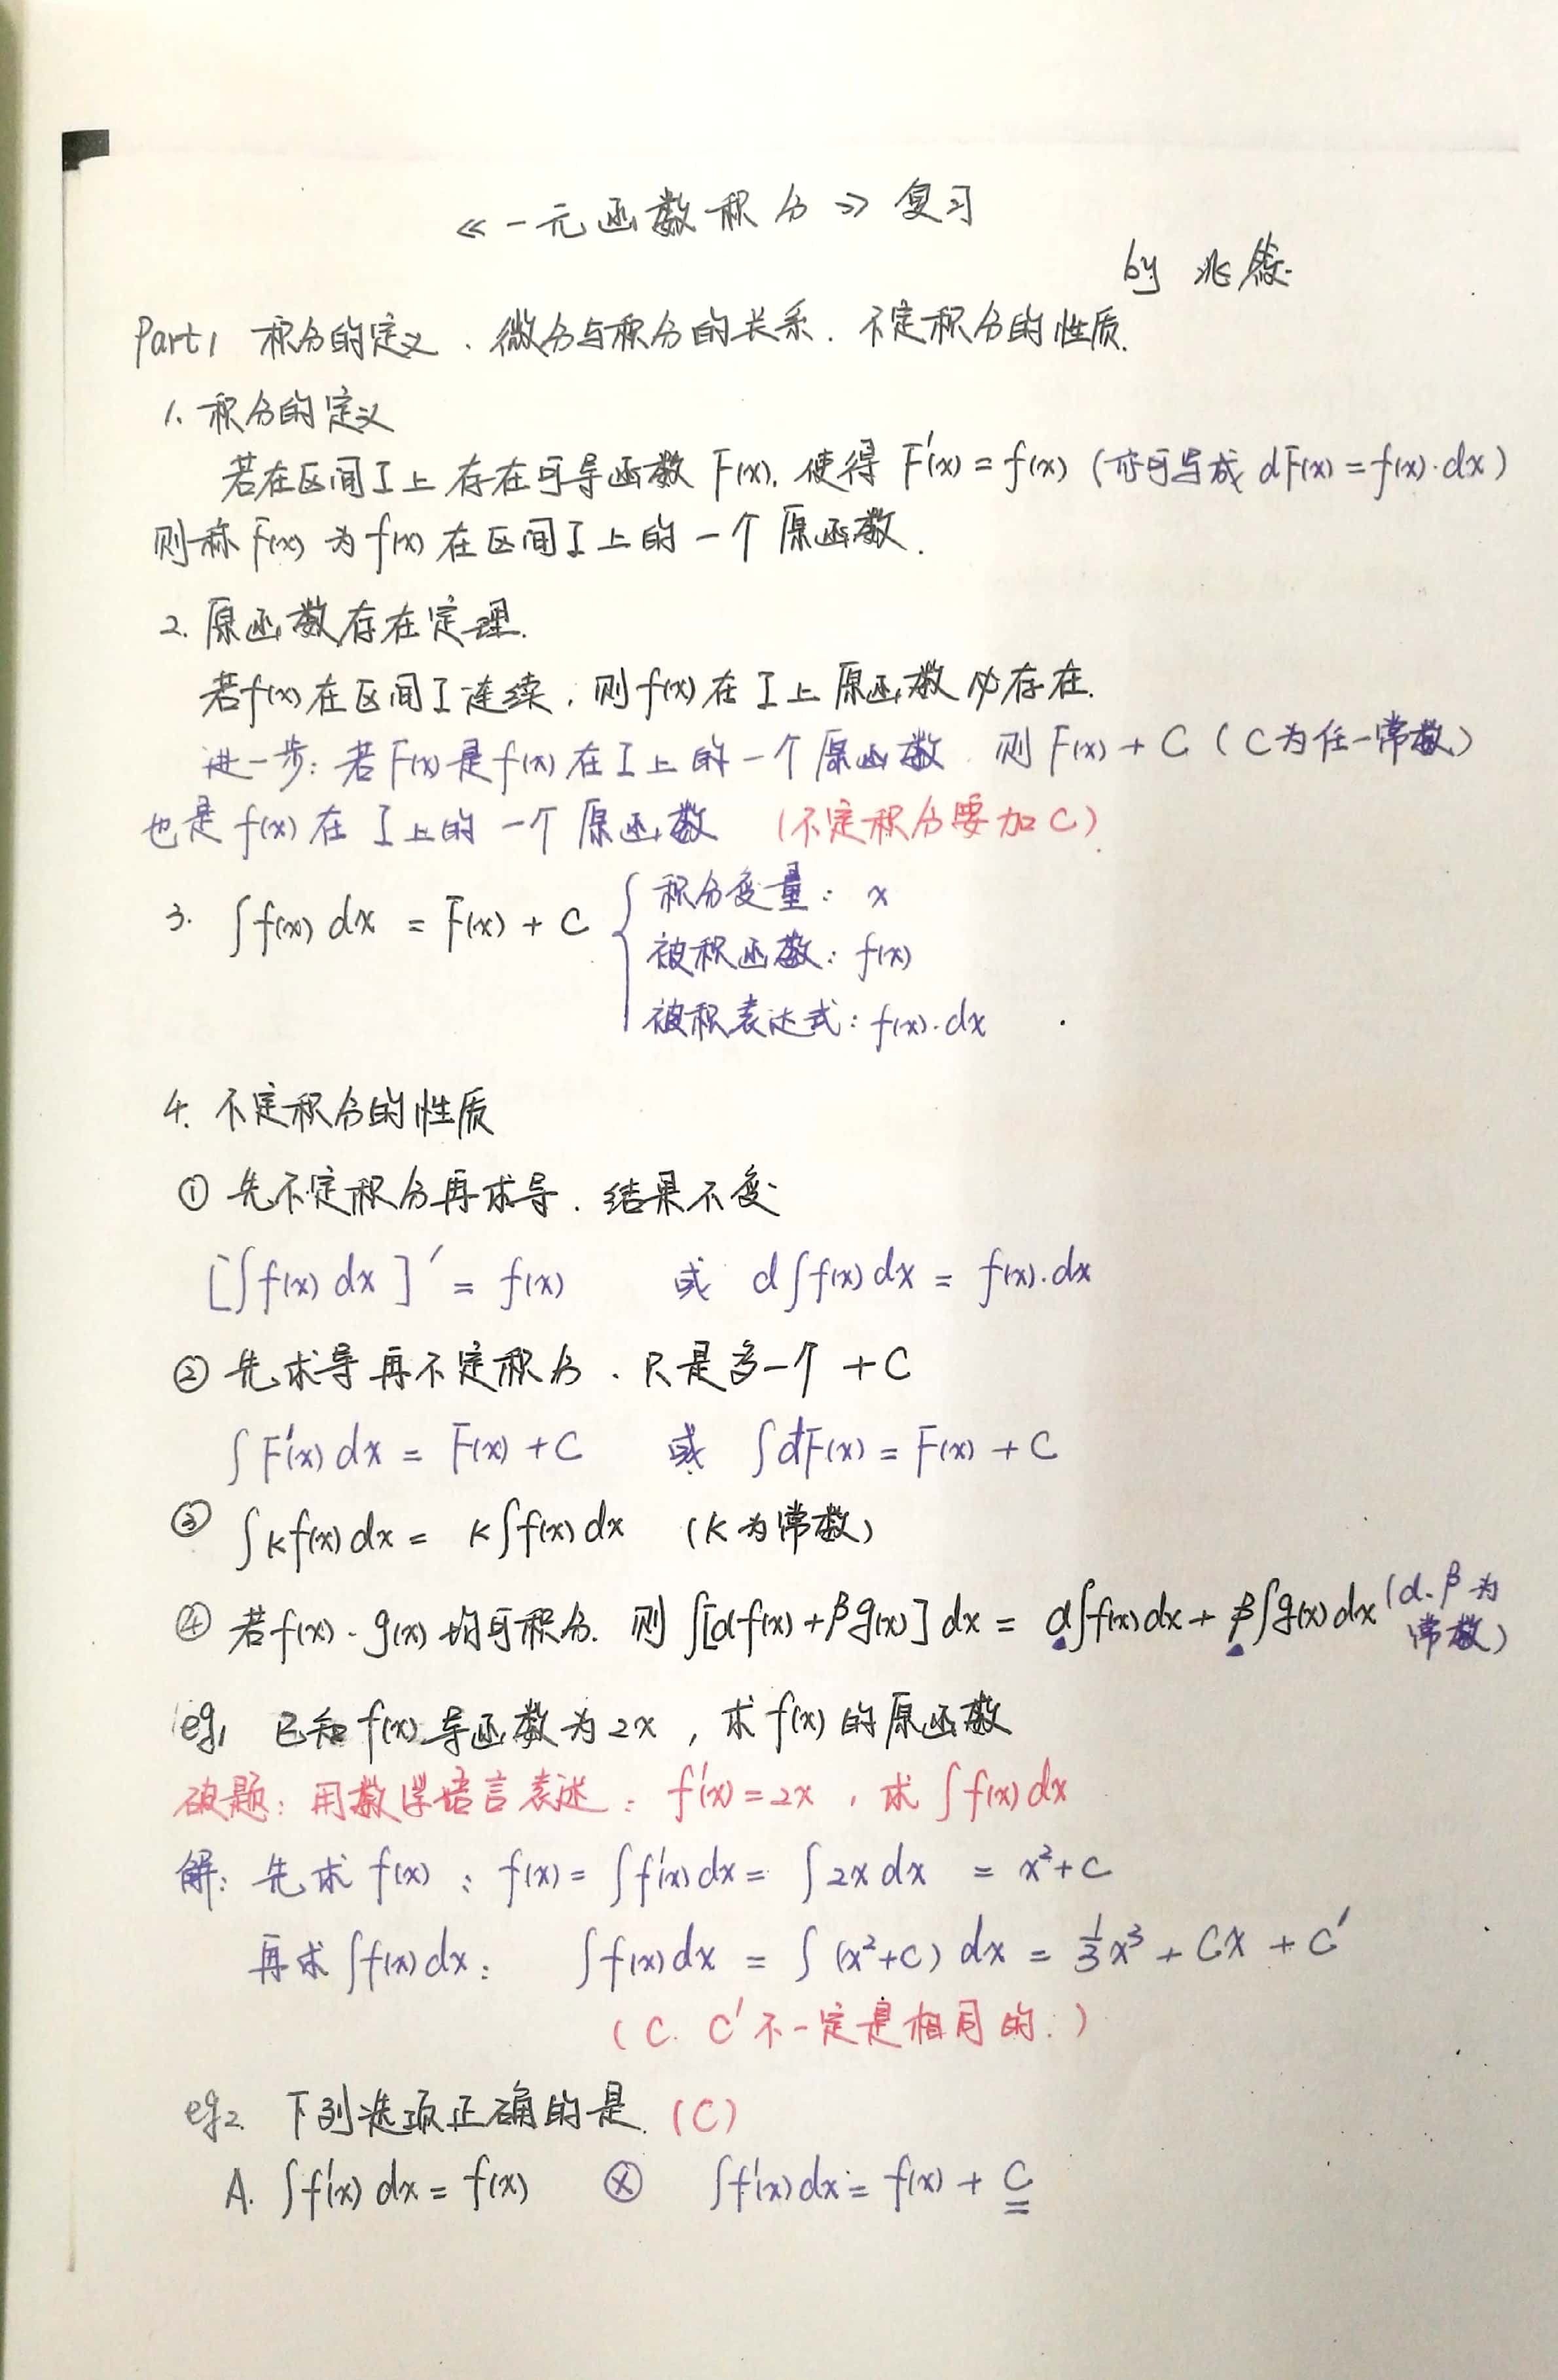 《一元函数积分》复习
by 兆
Part1 积分的定义、微分与积分的关系、不定积分的性质.
1. 积分的定义
若在区间I上存在可导函数 F(x), 使得 F'(x) = f(x) (亦可写成 dF(x) = f(x)·dx)
则称 F(x) 为 f(x) 在区间I上的一个原函数.
2. 原函数存在定理.
若f(x)在区间I连续, 则f(x)在I上原函数必存在.
进一步: 若F(x)是f(x)在I上的一个原函数, 则F(x) + C (C为任一常数)
也是f(x)在I上的一个原函数 (不定积分要加C).
3. ∫f(x) dx = F(x) + C { 积分变量: x
被积函数: f(x)
被积表达式: f(x)·dx
4. 不定积分的性质
① 先不定积分再求导, 结果不变
[∫f(x) dx]' = f(x) 或 d∫f(x) dx = f(x)·dx
② 先求导再不定积分, 只是多一个 +C
∫F'(x) dx = F(x) + C 或 ∫dF(x) = F(x) + C
③ ∫kf(x) dx = k∫f(x) dx (k为常数)
④ 若f(x)、g(x)均可积分, 则 ∫[αf(x) + βg(x)] dx = α∫f(x)dx + β∫g(x)dx (α、β为
常数)
eg1 已知f(x)导函数为2x, 求f(x)的原函数
破题: 用数学语言表述: f'(x) = 2x, 求∫f(x) dx
解: 先求f(x): f(x) = ∫f'(x) dx = ∫2x dx = x²+C
再求∫f(x)dx: ∫f(x)dx = ∫(x²+C) dx = ⅓x³ + Cx + C'
(C、C'不一定是相同的.)
eg2 下列选项正确的是 (C)
A. ∫f'(x) dx = f(x) ⊗ ∫f'(x)dx = f(x) + C